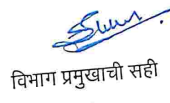 विभाग प्रमुखाची सही